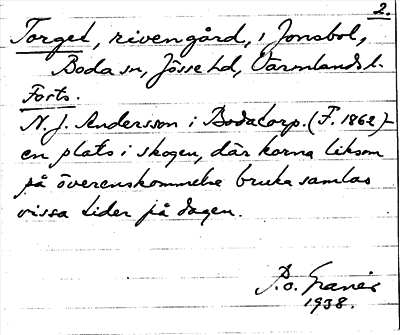 2.
Torget, riven gård, i Jonsbol,
Boda sn, Jösse hd, Värmlands l.
Forts.
N. J. Andersson i Bodatorp. (F. 1862) –
en plats i skogen, där korna liksom
på överenskommelse bruka samlas
vissa tider på dagen.
P. O. Granér
1938.